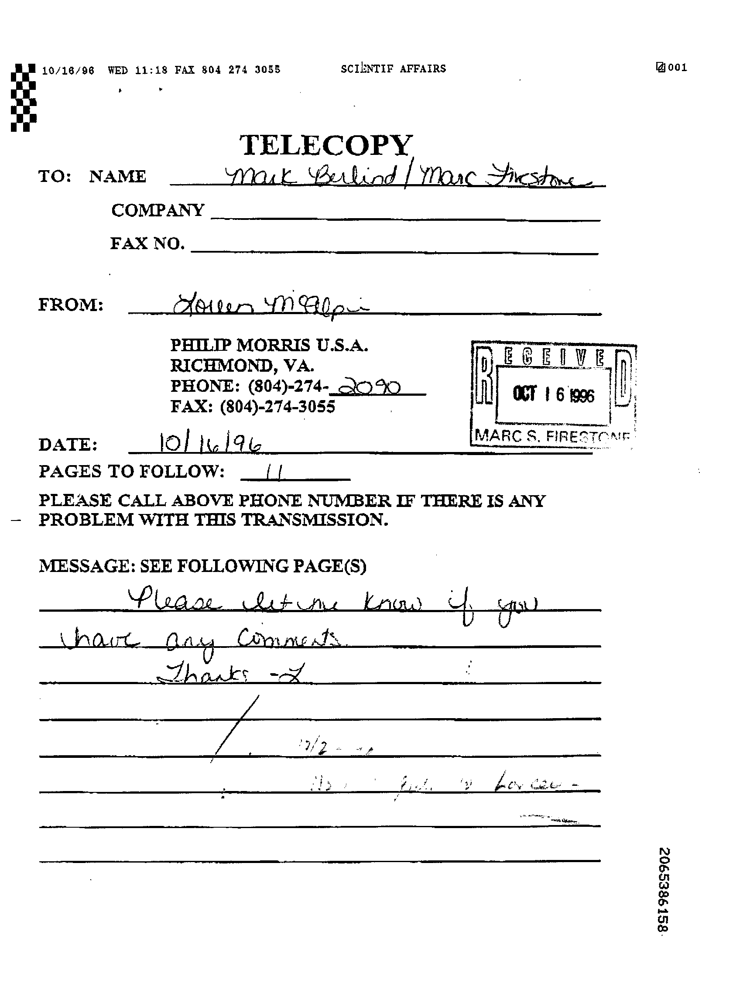 10/16/96 WED 11:18 FAX 804 274 3055 SCIENTIF AFFAIRS 001
TELECOPY
TO: NAME Mark Berlind / Marc Firestone
COMPANY
FAX NO.
FROM: Loreen McAlpin
PHILIP MORRIS U.S.A.
RICHMOND, VA.
PHONE: (804)-274-2090
FAX: (804)-274-3055
RECEIVED
OCT 16 1996
MARC S. FIRESTONE
DATE: 10/16/96
PAGES TO FOLLOW: 11
PLEASE CALL ABOVE PHONE NUMBER IF THERE IS ANY
PROBLEM WITH THIS TRANSMISSION.
MESSAGE: SEE FOLLOWING PAGE(S)
Please let me know if you
have any comments.
Thanks -L
10/2
2065386158